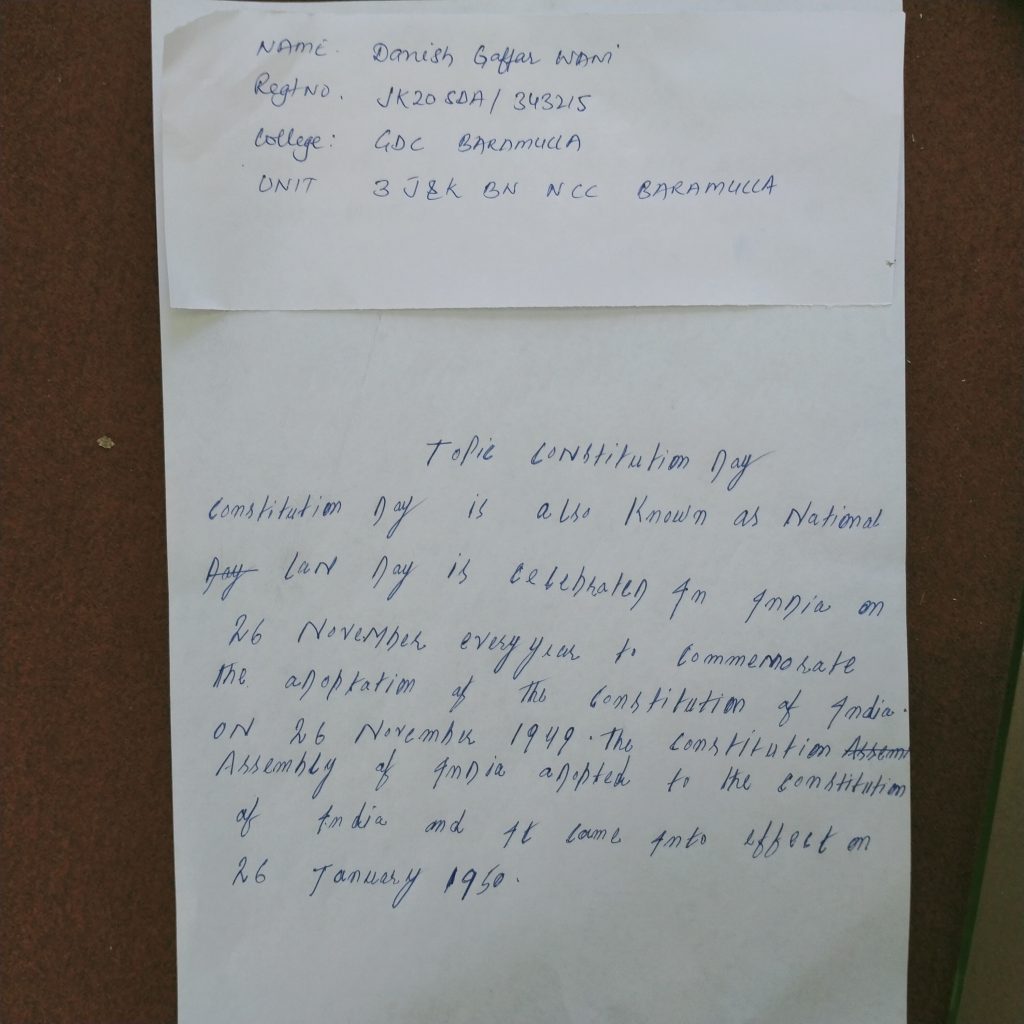 NAME. Danish Gaffar WANI
Regt NO. JK20SDA/343215
College: GDC BARAMULLA
UNIT 3 J&K BN NCC BARAMULLA
Topic Constitution Day
Constitution Day is also Known as National
Day Law Day is celebrated In India on
26 November every year to commemorate
the adoptation of the Constitution of India.
ON 26 November 1949. The Constitution Assem
Assembly of India adopted to the constitution
of India and It came Into effect on
26 January 1950.